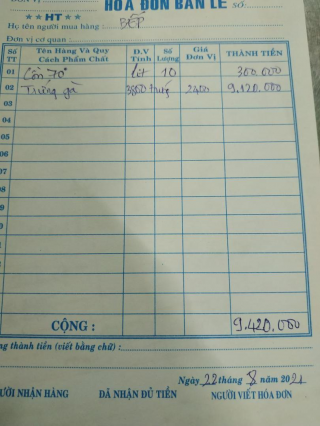 HÓA ĐƠN BÁN LẺ
★★ HT ★★
SỐ
Họ tên người mua hàng : BẾP
Đơn vị cơ quan :
Số TT Tên Hàng Và Quy Cách Phẩm Chất Đ.V Tính Số Lượng Giá Đơn Vị THÀNH TIỀN
01 Cồn 70° lít 10 300.000
02 Trứng gà 3800 trứng 2400 9.120.000
03
04
05
06
07
CỘNG : 9.420.000
ng thành tiền (viết bằng chữ) :
Ngày 22 tháng 8 năm 2021
ƯỜI NHẬN HÀNG ĐÃ NHẬN ĐỦ TIỀN NGƯỜI VIẾT HÓA ĐƠN